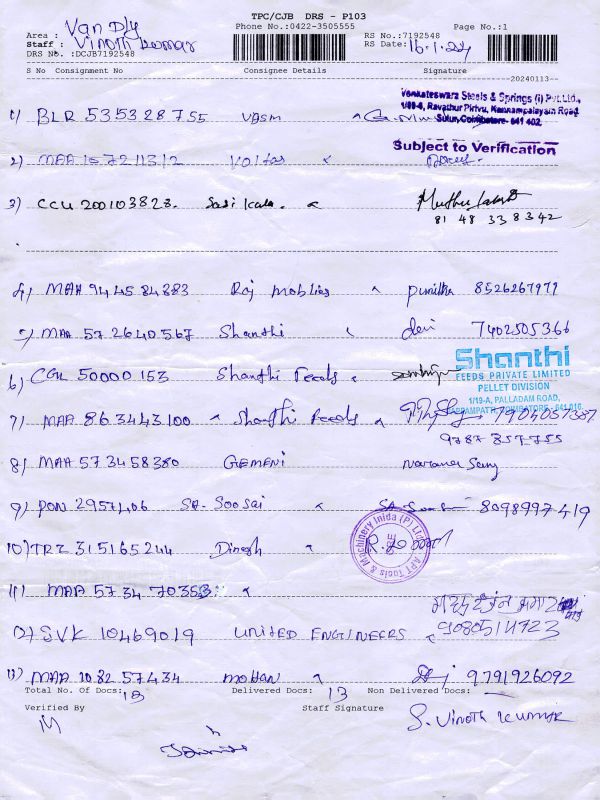 TPC/CJB DRS - P103
Phone No.:0422-3505555 Page No.:1
Area : Van Dly
Staff : Vinoth kumar
RS No.:7192548
RS Date: 16.1.24
DRS No. :DCJB7192548
S No Consignment No Consignee Details Signature
20240113--
Venkateswara Steels & Springs (I) Pvt.Ltd.,
1/89-6, Ravathur Pirivu, Kannampalayam Road
Sulur, Coimbatore- 641 402.
1) BLR 535328755 VPSM
Subject to Verification
2) MAA 157211312 Voltas
3) CCU 200103828. Sasi kala.
81 48 33 8 3 42
4) MAA 944584883 Raj moblies punitha 8526267971
5) MAA 572640567 Shanthi devi 7402505366
Shanthi
FEEDS PRIVATE LIMITED
PELLET DIVISION
1/19-A, PALLADAM ROAD,
6) CGL 50000153 Shanthi Feeds
7) MAA 863443100 Shanthi feeds
9787 857755
8) MAA 573458380 GEMENI
9) PON 2957406 SA. Soosai 8098997419
APT Tools & Machinery Inida (P) Ltd
10) TRZ 315165244 Dinesh
11) MAA 573470353
12) SVK 10469019 UNITED ENGINEERS
13) MAA 108257434 mohan 9791926092
Total No. Of Docs: 13 Delivered Docs: 13 Non Delivered Docs: —
Verified By Staff Signature
S. Vinoth Kumar